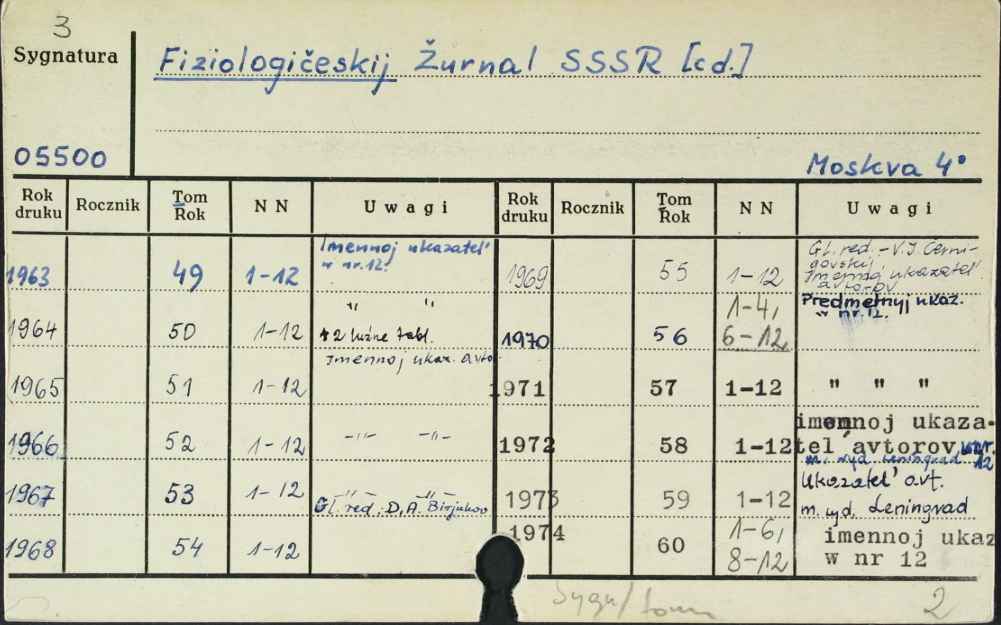 3
Sygnatura
Fiziologičeskij Žurnal SSSR [cd.]
05500
Moskva 4°
Rok druku Rocznik Tom Rok NN Uwagi Rok druku Rocznik Tom Rok NN Uwagi
1963 49 1-12 Imennoj ukazatel' w nr.12.
1964 50 1-12 " " +2 luźne tabl.
1965 51 1-12 Imennoj ukaz. avto
1966 52 1-12 -"- -"-
1967 53 1-12 -"- -"- Gl. red.: D.A. Birjukov
1968 54 1-12
1969 55 1-12 Gl. red. - V.I. Černigovskij Imennoj ukazatel' avtorov
1970 56 1-4, 6-12, Predmetnyj ukaz. w nr.12.
1971 57 1-12 " " "
1972 58 1-12 imennoj ukazatel' avtorov w nr. 12 m. wyd. Leningrad
1973 59 1-12 Ukazatel' avt. m. wyd. Leningrad
1974 60 1-6, 8-12 imennoj ukaz w nr 12
2